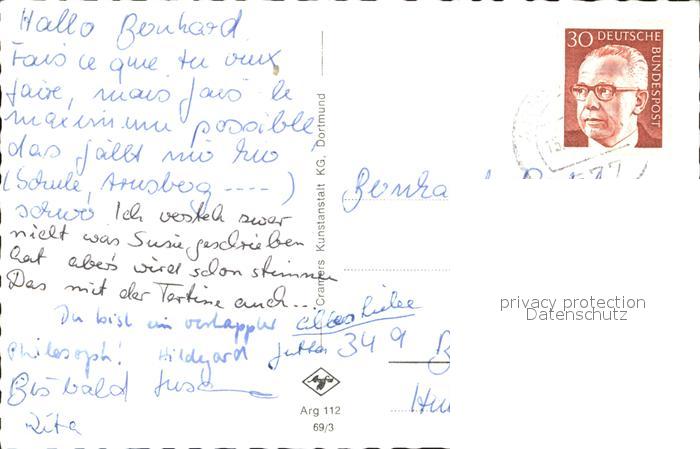 Hallo Bernhard
Fais ce que tu veux
faire, mais fais le
maximum possible
das fällt mir
(Schule, Arnsberg ---- )
Ich versteh zwar
nicht was Susi geschrieben
hat aber's wird schon stimmen
Das mit der Tartine auch...
Du bist ein verkappter alles Liebe
Philosoph! Hildegard Jutta 349 B
Bis bald Susa
Rita
Cramers Kunstanstalt KG, Dortmund
Arg 112
69/3
30 DEUTSCHE
BUNDESPOST
577
privacy protection
Datenschutz